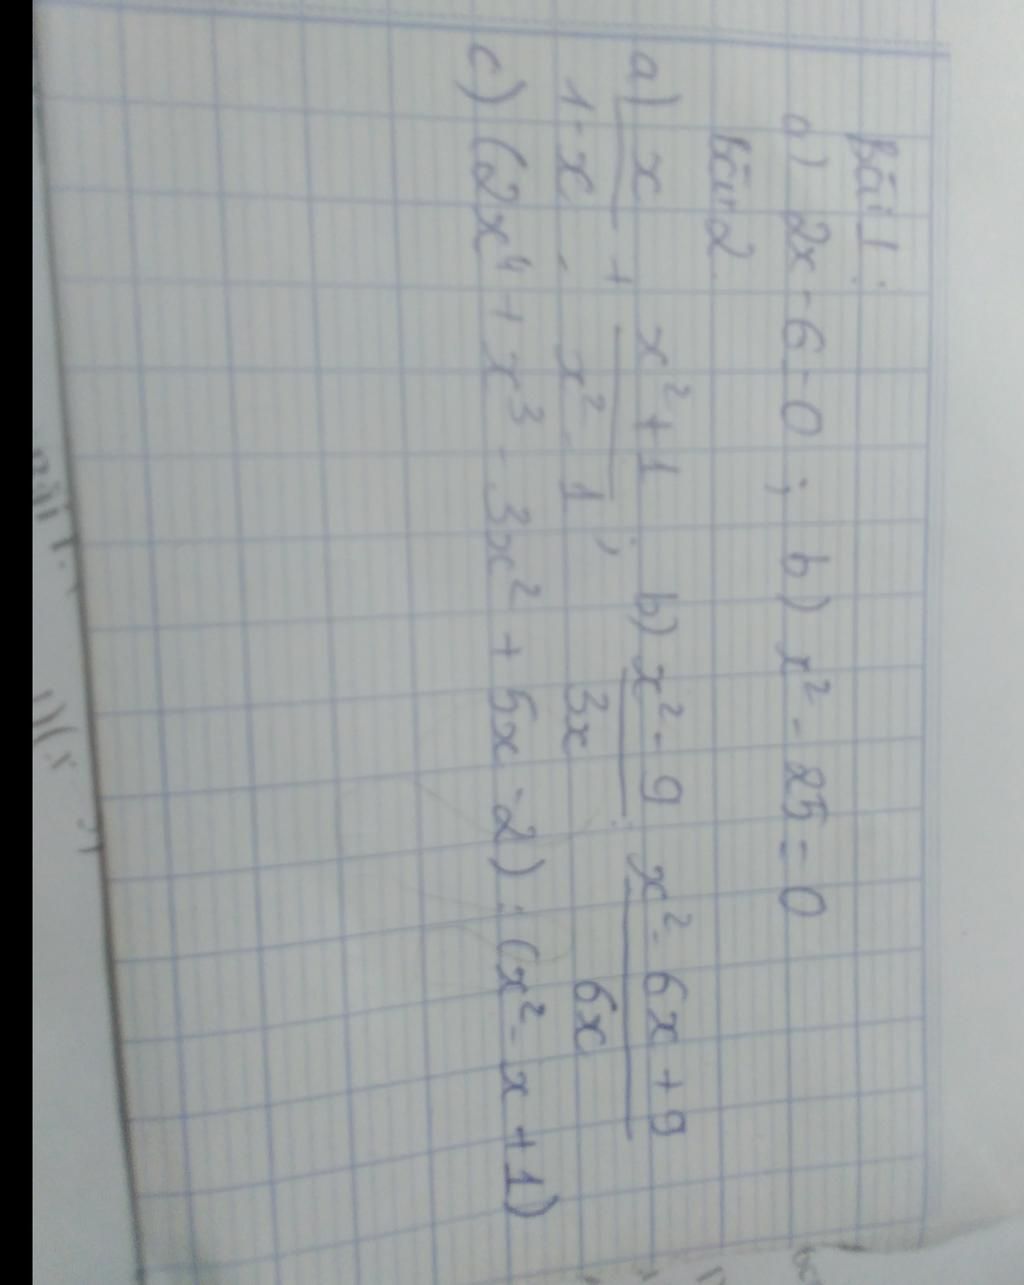 Bài 1:
a) 2x - 6 = 0 ; b) x² - 25 = 0
Bài 2
a) x/(1-x) + (x²+1)/(x²-1) ; b) (x²-9)/3x : (x²-6x+9)/6x
c) (2x⁴ + x³ - 3x² + 5x - 2) : (x² - x + 1)